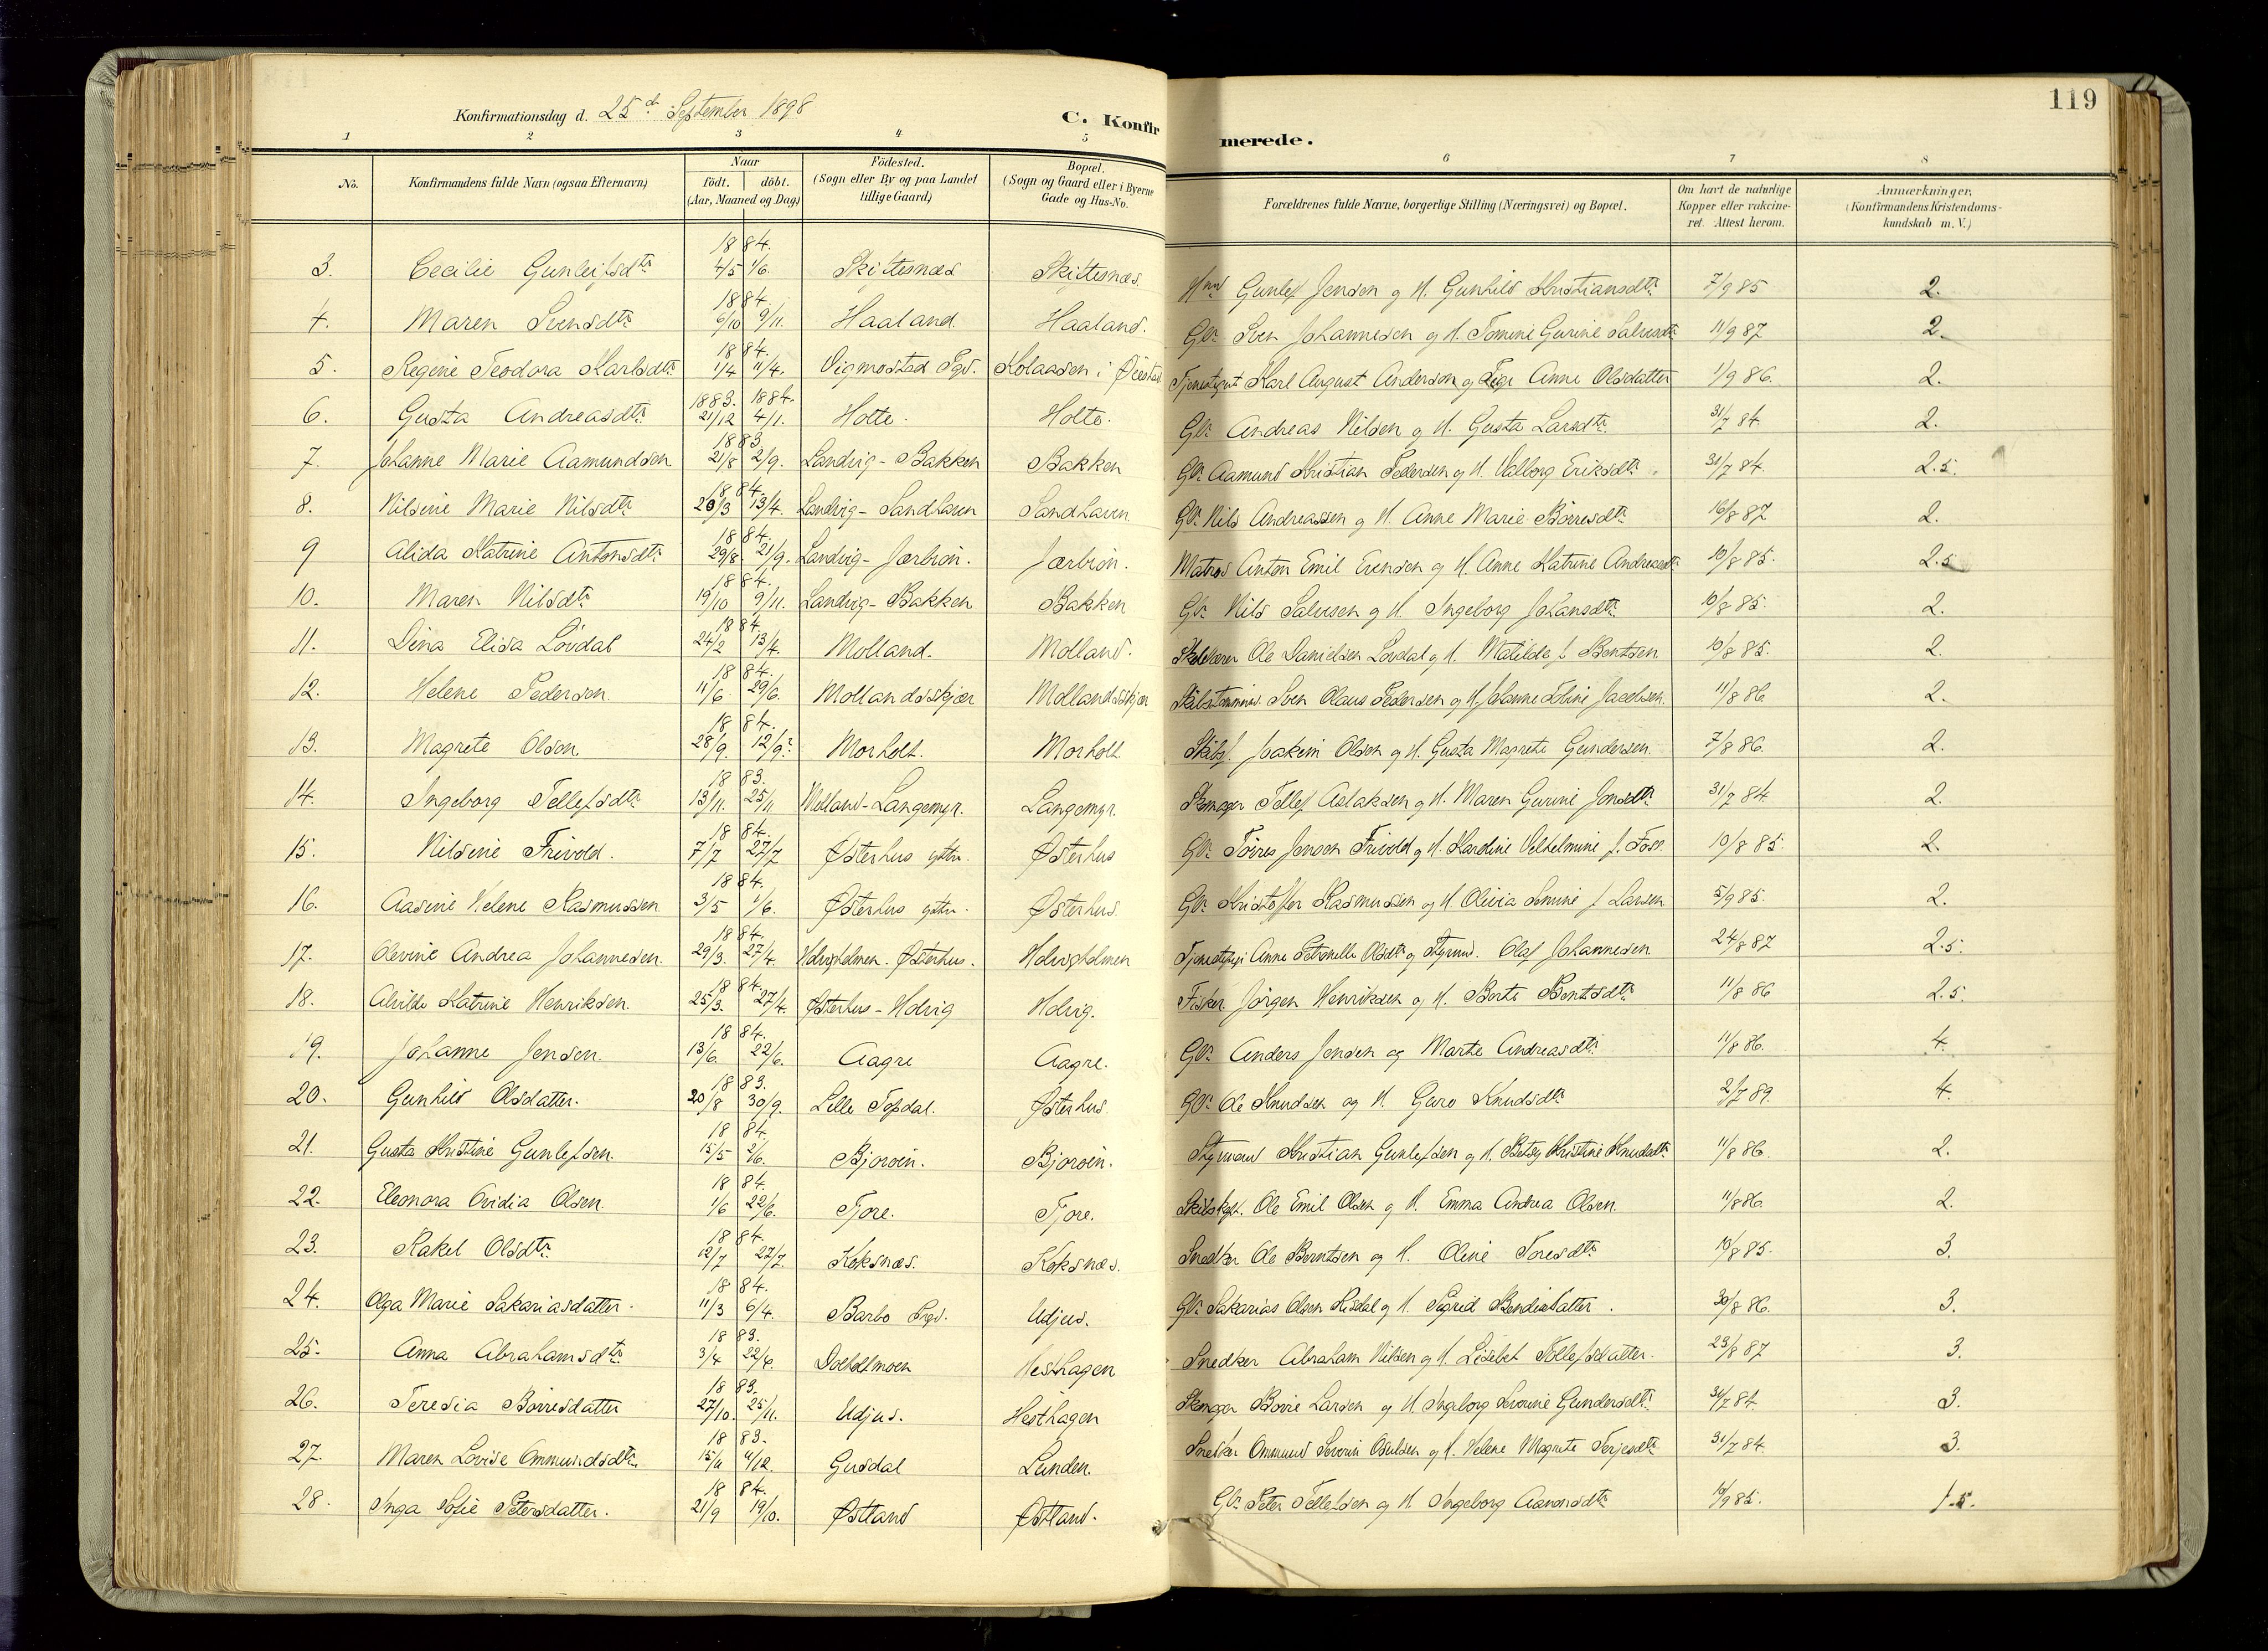 119
Konfirmationsdag d. 25de September 1898
C. Konfirmerede.
1 2 3 4 5 6 7 8
No. | Konfirmandens fulde Navn (ogsaa Efternavn) | Naar født. døbt. (Aar, Maaned og Dag) | Fødested. (Sogn eller By og paa Landet tillige Gaard) | Bopæl. (Sogn og Gaard eller i Byerne Gade og Hus-No. | Forældrenes fulde Navne, borgerlige Stilling (Næringsvei) og Bopæl. | Om havt de naturlige Kopper eller vakcineret. Attest herom. | Anmærkninger, (Konfirmandens Kristendomskundskab m. V.)
3. Cecilie Gunleifsdtr. 1884. 4/5 1/6. Skiftesnæs Skiftesnæs. Gunlef Jensen og H. Gunhild Kristiansdtr. 7/9 85 2.
4. Maren Svensdtr. 1884. 6/10 9/11. Haaland. Haaland. Gbr. Sven Johannesen og H. Tomine Gurine Salvesdtr. 11/9 87 2.
5. Regine Teodora Karlsdtr. 1884. 1/4 11/4. Vigmostad Pgd. Kolaasen i Øiestad Karl August Andersen og Pige Anne Olsdatter 1/9 86. 2.
6. Gusta Andreasdtr. 1883. 1884. 21/12 4/1. Holte. Holte. Gbr. Andreas Nilsen og H. Gusta Larsdtr. 31/7 84. 2.
7. Johanne Marie Aamundsen 1883. 21/8 2/9. Landvig-Bakken Bakken Gbr. Aamund Kristian Pedersen og H. Valborg Eriksdtr. 31/7 84. 2.5.
8. Nilsine Marie Nilsdtr. 1884. 20/3 13/4. Landvig-Sandhaven Sandhaven Gbr. Nils Andreassen og H. Anne Marie Børresdtr. 16/8 87 2.
9 Alida Katrine Antonsdtr. 1884. 29/8. 21/9. Landvig-Jærbrøn. Jærbrøn. Matros Anton Emil Evensen og H. Anne Katrine Andreasdtr. 10/8 85. 2.5
10. Maren Nilsdtr. 1884. 19/10 9/11. Landvig-Bakken Bakken Gbr. Nils Salvesen og H. Ingeborg Johansdtr. 10/8 85. 2.
11. Dina Elisa Løvdal 1884. 24/2 13/4. Molland. Molland. Skolelærer Ole Danielsen Løvdal og H. Matilde f. Bentsen 10/8 85. 2.
12. Helene Pedersen. 1884. 11/6. 29/6. Mollandsskjær Mollandsskjær Skibstømmerm. Sven Olaus Pedersen og H. Johanne Jacobsen. 11/8 86 2.
13. Magrete Olsen 1884. 28/9. 12/9? Morholt. Morholt. Skibsf. Joakim Olsen og H. Gusta Magrete Gundersen. 7/8 86. 2.
14. Ingeborg Tellefsdtr. 1883. 13/11. 25/11 Molland-Langemyr. Langemyr. Skomager Tellef Aslaksen og H. Maren Gurine Jonsdtr. 31/7 84. 2.
15. Nilsine Frivold. 1884. 7/7 27/7 Østerhus yttre. Østerhus Gbr. Tørres Jensen Frivold og H. Karoline Velhelmine f. Foss 10/8 85. 2.
16. Aasine Helene Rasmussen 1884. 3/5 1/6. Østerhus yttre. Østerhus. Gbr. Kristoffer Rasmussen og H. Olivia Semine f. Larsen 5/9 85. 2.
17. Olevine Andrea Johannesen. 1884. 29/3. 27/4. Holvigholmen. Østerhus. Holvigholmen Anne Petronelle Olsdtr. og Styrmd. Olaf Johannesen 24/8 87 2.5.
18. Alvilde Katrine Henriksen. 1884. 25/3. 27/4. Østerhus-Holvig Holvig. Fisker. Jørgen Henriksen og H. Berte Bentsdtr. 11/8 86 2.5.
19. Johanne Jensen. 1884. 13/6. 22/6. Aagre Aagre. Gbr. Anders Jensen og Marte Andreasdtr. 11/8 86. 4.
20. Gunhild Olsdatter. 1883. 20/8 30/9. Lille Topdal. Østerhus. Gbr. Ole Knudsen og H. Guro Knudsdtr. 2/7 89. 4.
21. Gusta Kristine Gunlefsen. 1884. 15/5 2/6. Bjorøen. Bjorøen. Styrmand Kristian Gunlefsen og H. Betsy Kristine Knudsdtr. 11/8 86. 2.
22. Eleonora Ovidia Olsen. 1884. 1/6 22/6. Fjore. Fjore. Skibskpt. Ole Emil Olsen og H. Emma Andrea Olsen. 11/8 86. 2.
23. Rakel Olsdtr. 1884. 12/7 27/7. Koksnæs. Koksnæs. Snedker Ole Berntsen og H. Oline Toresdtr. 10/8 85. 3.
24. Olga Marie Sakariasdatter. 1884. 11/3 6/4. Barbo Pregd. Udjus. Gbr. Sakarias Olsen Hisdal og H. Sigrid Bendixdatter. 30/8 86. 3.
25. Anna Abrahamsdtr. 1883. 3/4 22/4. Doltholmoen Hesthagen Snedker Abraham Nilsen og H. Lisebet Tellefsdatter. 23/8 87 3.
26. Teresia Børresdatter 1883. 27/10. 25/11. Udjus. Hesthagen Skomager Børre Larsen og H. Ingeborg Severine Gundersdtr. 31/7 84. 3.
27. Maren Lovise Ommundsdtr. 1883. 15/11 4/12. Gusdal Lunden. Snedker Ommund Severin Osulsen og H. Helene Magrete Terjesdtr. 31/7 84. 3.
28. Inga Sofie Petersdatter. 1884. 21/9 19/10. Østland Østland. Gbr. Peter Tellefsen og H. Ingeborg Aanonsdtr. 10/9 85. 1.5.